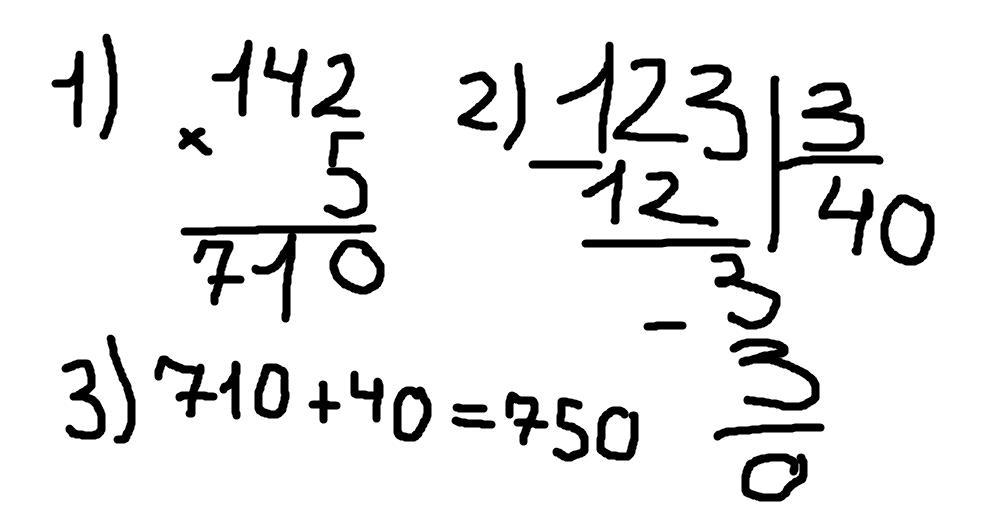 1) 142
× 5
710
2) 123 | 3
- 12 40
- 3
3
0
3) 710 + 40 = 750